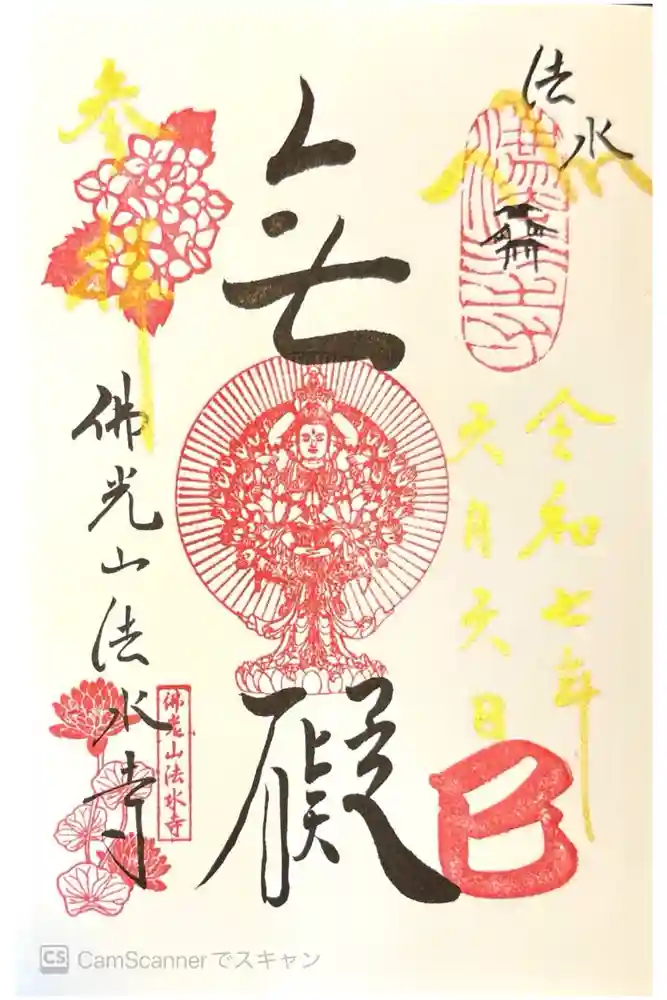 法水
令和七年
巳
無
礙
佛光山法水寺
佛光山法水寺
CS CamScannerでスキャン